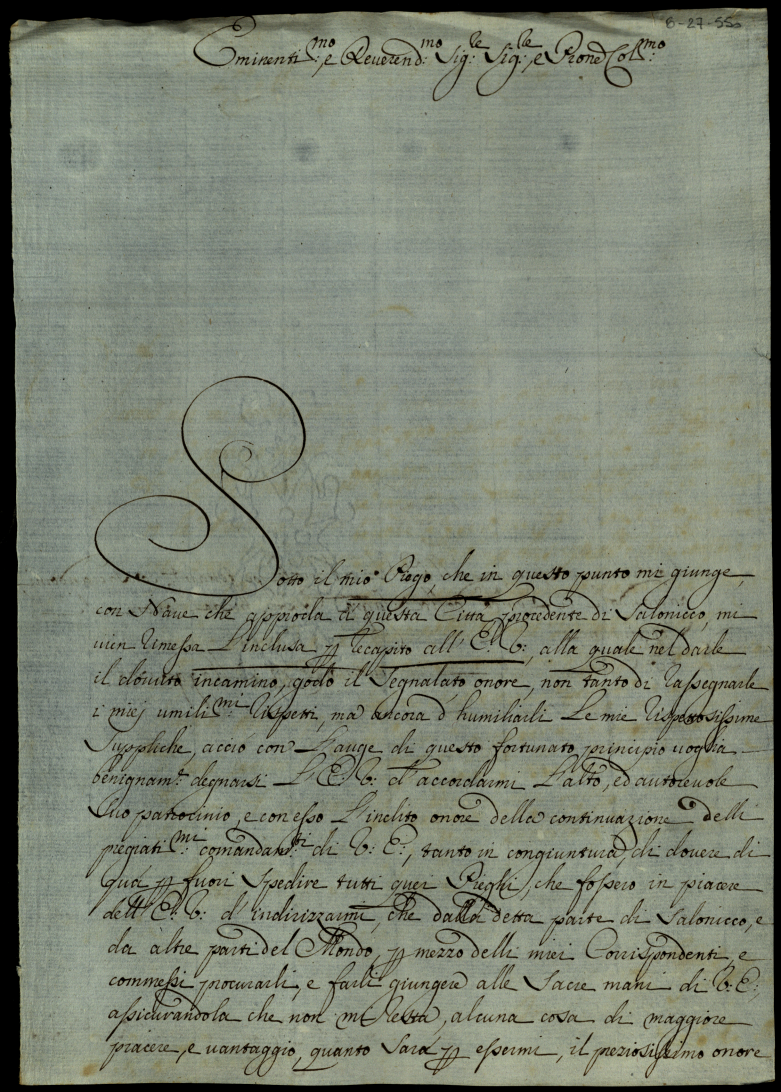 8-27-550
Eminenti:mo, e Reverend:mo Sig:re Sig:re, e Prone Col:mo
Sotto il mio Piego, che in questo punto mi giunge,
con Nave che approda à questa Città procedente di Salonicco, mi
vien rimessa L'inclusa p recapito all' E: V:, alla quale nel darle
il dovuto incamino, godo il Segnalato onore, non tanto di rassegnarle
i miej umili:mi rispetti, ma ancora d'humiliarli Le mie rispettosissime
Suppliche, acciò con L'auge di questo fortunato principio voglia
benignam:te degnarsi L'E: V: d'accordarmi L'alto, ed autorevole
Suo patrocinio, e con esso L'inclito onore della continuazione delli
pregiati:mi comandam:ti di V: E:, tanto in congiuntura, di dovere di
quà p fuori Spedire tutti quei Pieghi, che fossero in piacere
dell' E: V: d'indirizzarmi, che dalla detta parte di Salonicco, e
da altre parti del Mondo, p mezzo delli miei Corrispondenti, e
commessi procurarli, e farli giungere alle Sacre mani di V: E:,
assicurandola che non mi resta, alcuna cosa di maggiore
piacere, e vantaggio, quanto Sarà p essermi, il preziosissimo onore